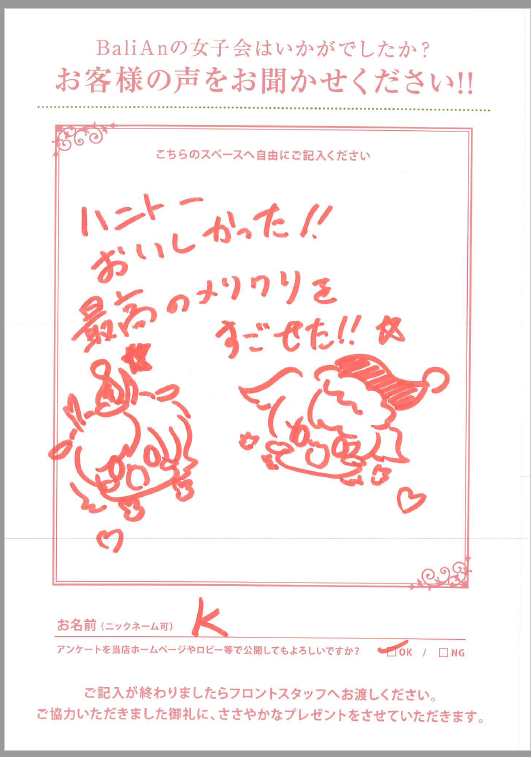 BaliAnの女子会はいかがでしたか？
お客様の声をお聞かせください!!
こちらのスペースへ自由にご記入ください
ハニトー
おいしかった!!
最高のメリクリを
すごせた!!
お名前（ニックネーム可） K
アンケートを当店ホームページやロビー等で公開してもよろしいですか？ □OK / □NG
ご記入が終わりましたらフロントスタッフへお渡しください。
ご協力いただきました御礼に、ささやかなプレゼントをさせていただきます。